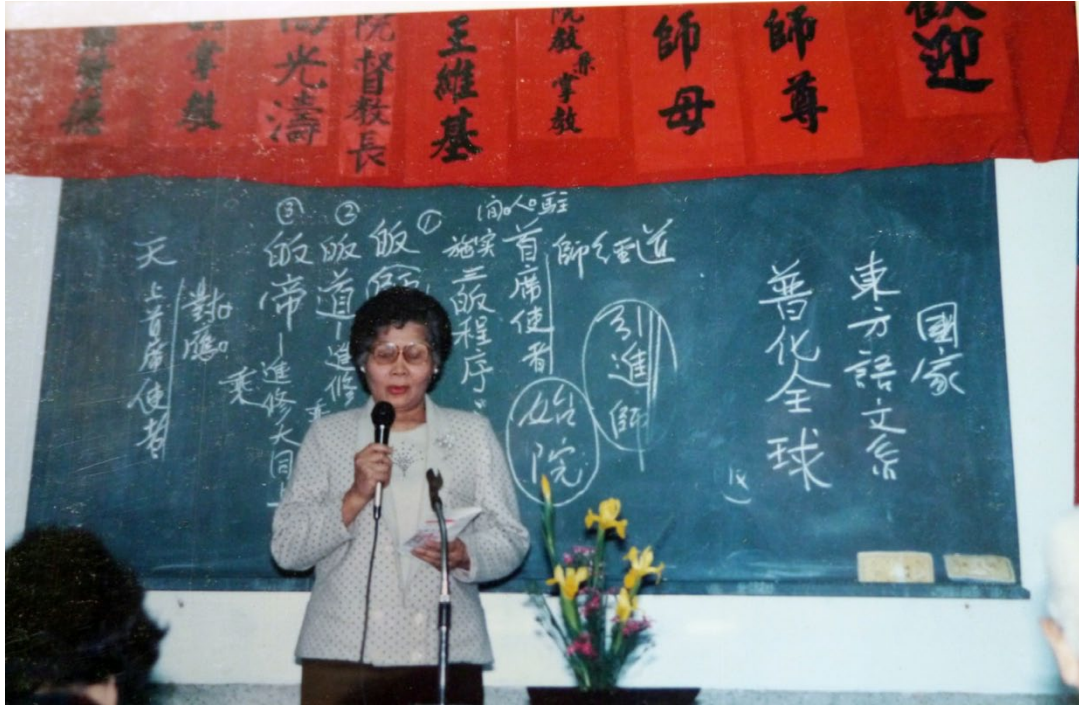 歡迎
師尊
師母
院教兼掌教
王維基
院督教長
光濤
掌教
國家
東方語文系
普化全球
道
師
引進師
駐人間
首席使者
始院
施实
三皈程序
①
皈師
②
皈道－進修
③
皈帝－進修大同
乘
對應
天
上首席使者